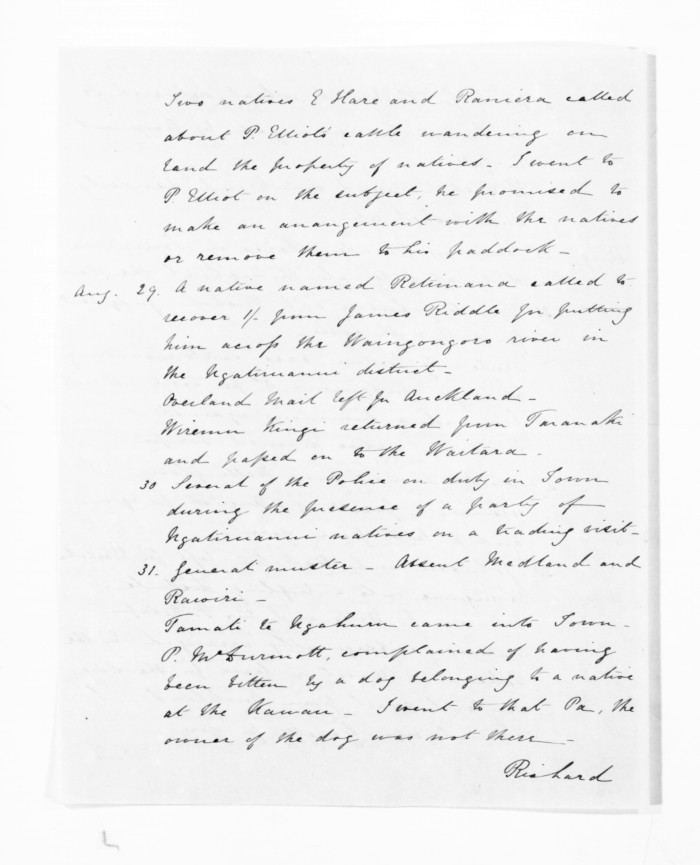 Two natives E Hare and Raniera called
about P. Elliot's cattle wandering on
land the property of natives - I went to
P. Elliot on the subject, he promised to
make an arrangement with the natives
or remove them to his paddock -
Aug. 29. A native named Retimana called to
recover 1/- from James Riddle for putting
him across the Waingongoro river in
the Ngatiruanui district -
Overland Mail left for Auckland -
Wiremu Kingi returned from Taranaki
and passed on to the Waitara -
30 Several of the Police on duty in Town
during the presense of a party of
Ngatiruanui natives on a trading visit -
31. General muster - Absent Medland and
Rawiri -
Tamati te Ngahuru came into Town -
P. McDurmott, complained of having
been bitten by a dog belonging to a native
at the Kawau - I went to that Pa, the
owner of the dog was not there -
Richard